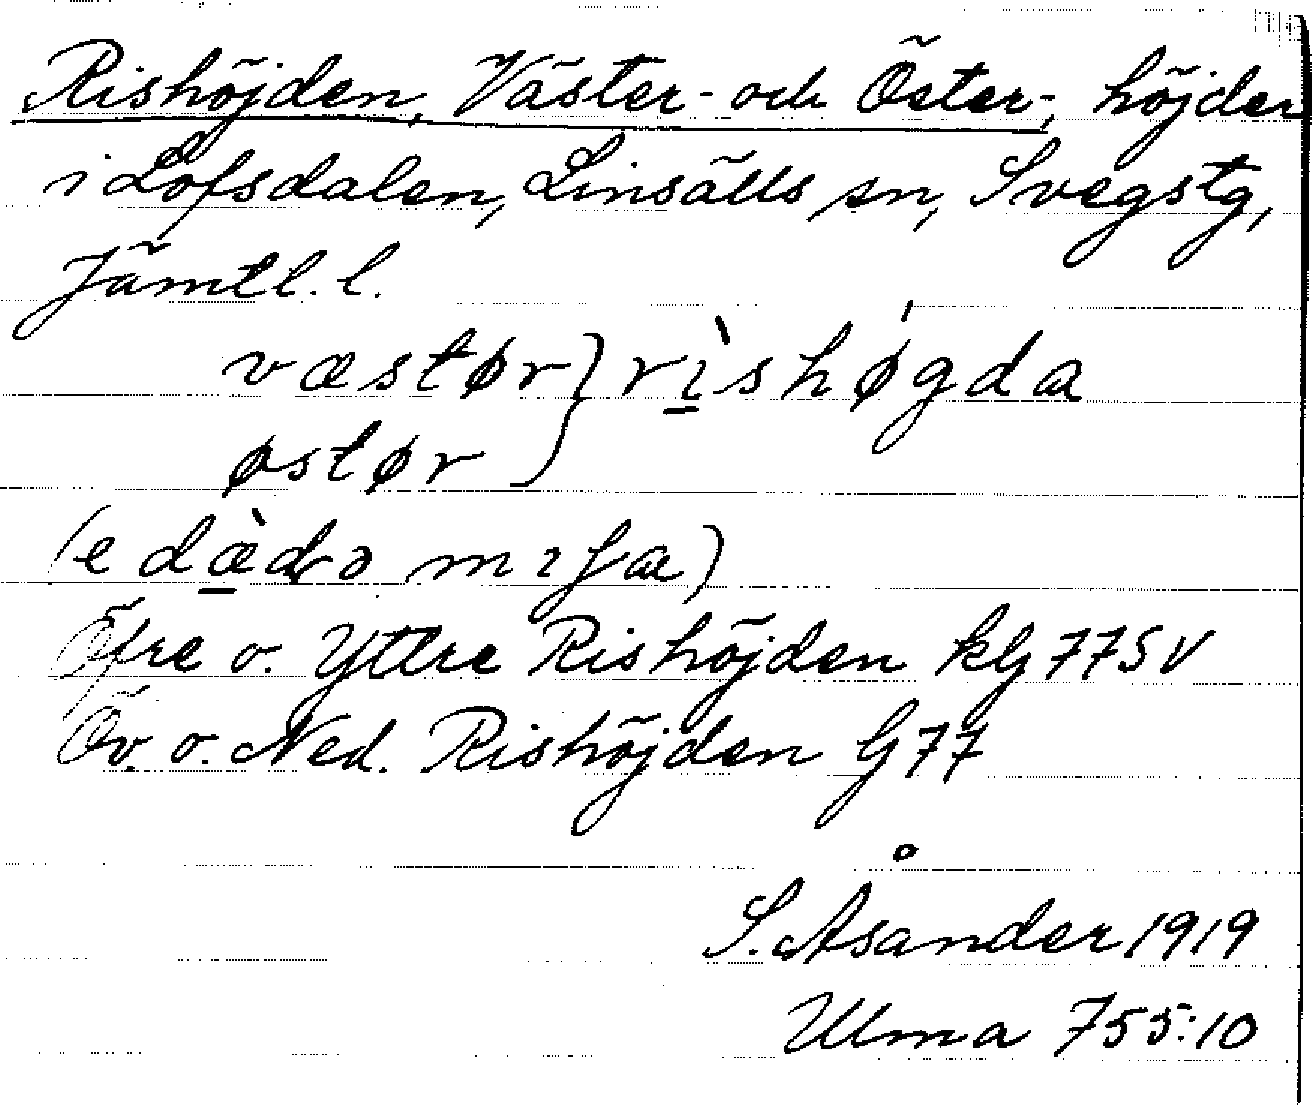 Rishöjden, Väster- och Öster-, höjder
i Lofsdalen, Linsälls sn, Svegs tg,
Jämtl. l.
væstør } rìshøgda
østør
Öfre o. Yttre Rishöjden kG 77 SV
Öv. o. Ned. Rishöjden G 77
S. Åsander 1919
Ulma 755:10